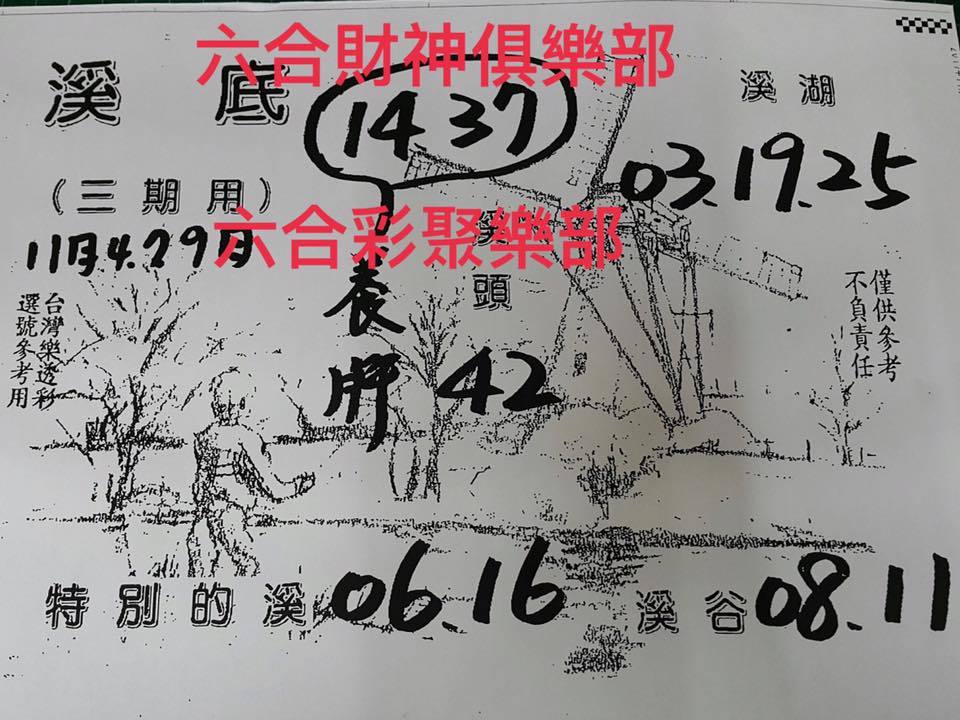 六合財神俱樂部
溪底
14.37
溪湖
03.19.25
(三期用)
六合彩聚樂部
11月4.29日
溪頭
42
養牌
台灣樂透彩
選號參考用
僅供參考
不負責任
特別的溪
06.16
溪谷
08.11